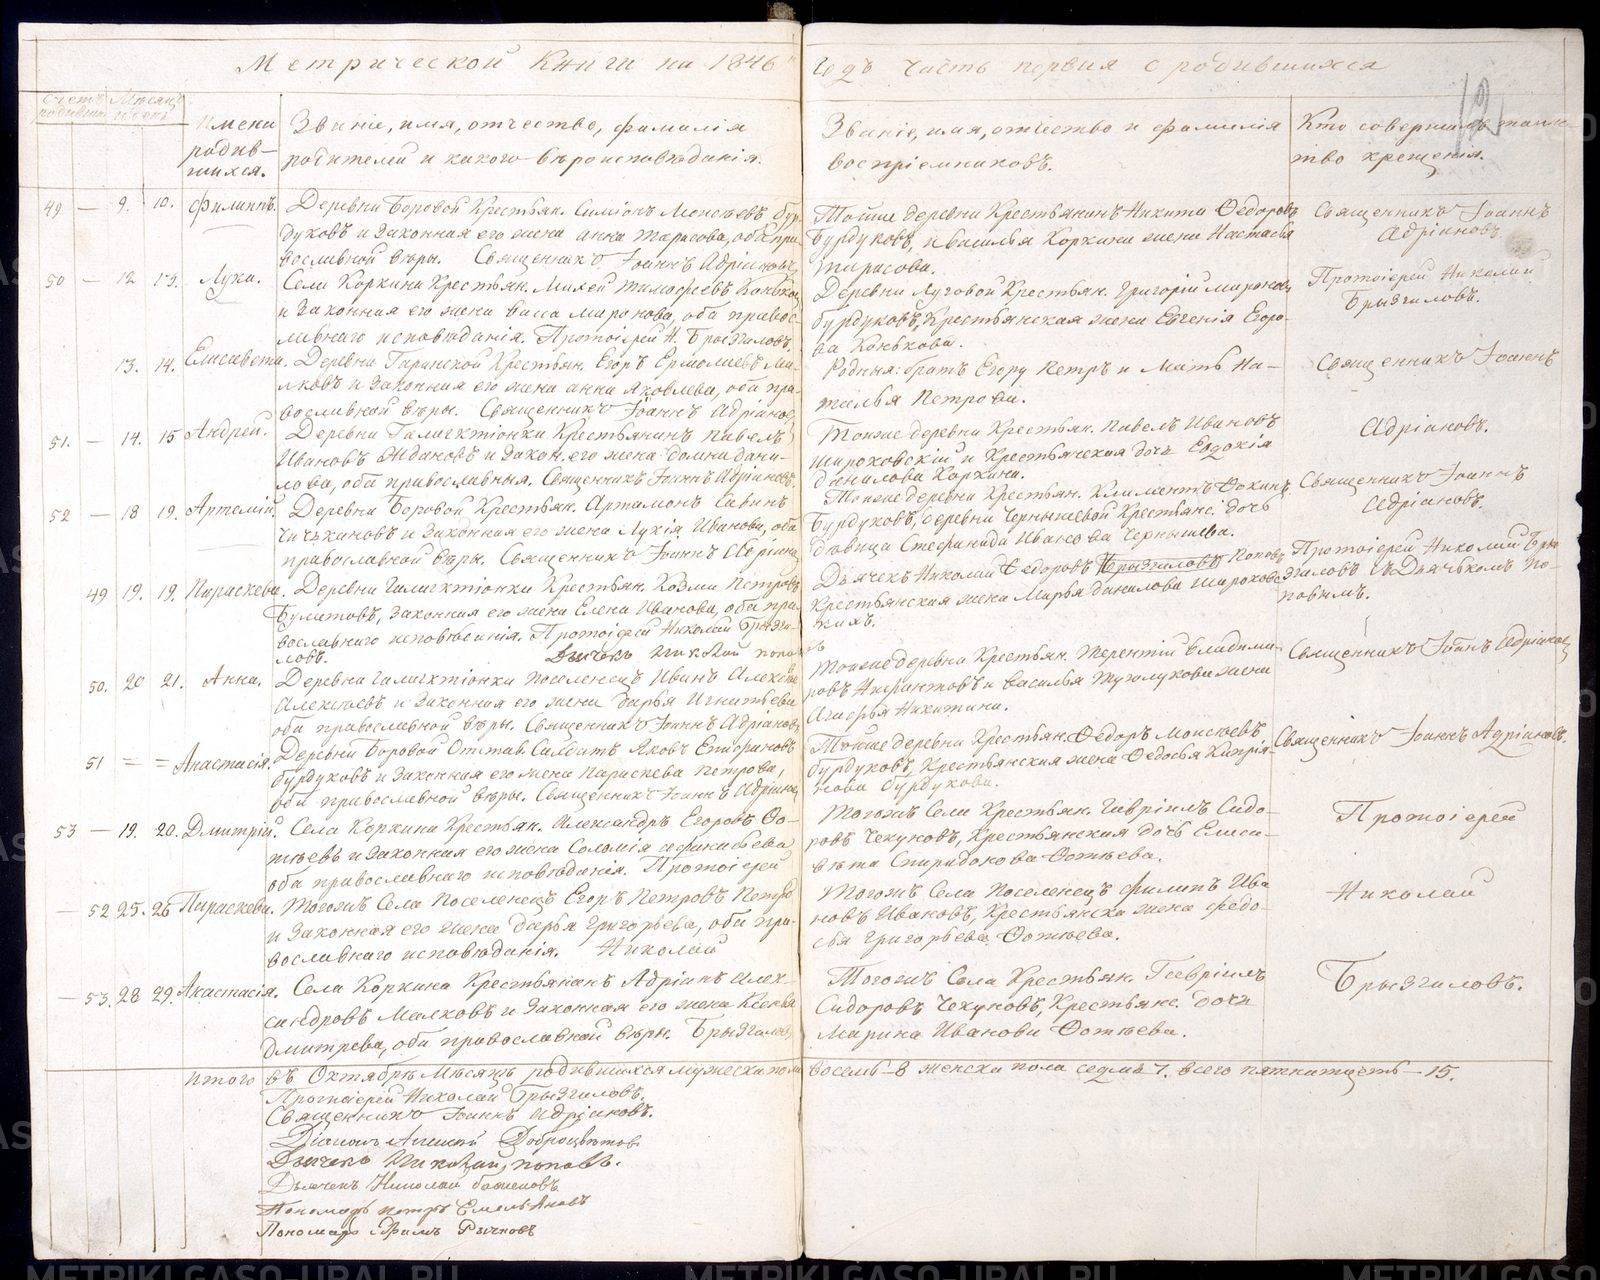 Метрической Книги на 1846 Годъ Часть первая о родившихся
12
Счетъ родивших. Месяцъ и день
Имена родив-шихся.
Званіе, имя, отчество, фамилія
родителей и какого вѣроисповѣданія.
Званіе, имя, отчество и фамилія
воспріемниковъ.
Кто совершилъ таинс-
тво крещенія.
49 — 9. 10. Филиппъ. Деревни Боровой Крестьян. Симіонъ Моисѣевъ бур-
дуковъ и законная его жена Анна Тарасова, оба пра-
вославной вѣры. Священникъ Іоаннъ Адріановъ.
Тойже деревни Крестьянинъ Никита Ѳедоровъ
Бурдуковъ, и Василья Коркина жена Настасья
Тарасова.
Священникъ Іоаннъ
Адріановъ.
50 — 12 13. Лука. Села Коркина Крестьян. Михей Тимофеевъ Коньков
и законная его жена Васса Миронова, оба правос-
лавнаго исповѣданія. Протоіерей Н. Брызгаловъ.
Деревни Луговой Крестьян. Григорій Мироновъ
бурдуковъ, Крестьянская жена Евгенія Егоро-
ва Конькова.
Протоіерей Николай
Брызгаловъ.
13. 14. Елисавета. Деревни Гаринской Крестьян. Егоръ Ермолаевъ Ма-
лковъ и законная его жена Анна Яковлева, оба пра-
вославной вѣры. Священникъ Іоаннъ Адріановъ.
Родныя: братъ Егору Петръ и Мать На-
талья Петрова.
Священникъ Іоаннъ
Адріановъ.
51. — 14. 15 Андрей. Деревни Галактіонки Крестьянинъ Павелъ
Ивановъ Ждановъ и закон. его жена Домна Дани-
лова, оба православныя. Священникъ Іоаннъ Адріановъ.
Тойже деревни Крестьян. Павелъ Ивановъ
Широковскій и Крестьянская дочь Евдокія
Данилова Коркина.
Священникъ Іоаннъ
Адріановъ.
52 — 18 19. Артемій. Деревни Боровой Крестьян. Артамонъ Савинъ
Чичькановъ и Законная его жена Лукія Иванова, оба
православной вѣры. Священникъ Іоаннъ Адріанов
Тойже деревни Крестьян. Климентъ Ѳокинъ
Бурдуковъ, деревни Чернышевой Крестьянс. дочь
дѣвица Стефанида Иванова Чернышева.
49 19. 19. Параскева. Деревни Галактіонки Крестьян. Козма Петровъ
Булатовъ, Законная его жена Елена Иванова, оба пра-
вославнаго исповѣданія. Протоіерей Николай Брызга-
ловъ. Дьячекъ Николай Попов
Дьячекъ Николай Ѳедоровъ Брызгаловъ Поповъ
Крестьянская жена Марья Данилова Широковс-
кихъ.
Протоіерей Николай Бры-
згаловъ съ Дьячькомъ По-
повымъ.
50. 20 21. Анна. Деревни Галактіонки Поселенецъ Иванъ Алексѣев
Алексѣевъ и законная его жена Дарья Игнатьева
оба православной вѣры. Священникъ Іоаннъ Адріановъ
Тойже деревни Крестьян. Терентій Владими-
ровъ Ниѳантовъ и Василья Туголукова жена
Агафья Никитина.
Священникъ Іоаннъ Адріановъ
51 = = Анастасія. Деревни Боровой Отстав. Салдатъ Яковъ Епифановъ
бурдуковъ и Законная его жена Параскева Петрова,
оба православной вѣры. Священникъ Іоаннъ Адріанов
Тойже деревни Крестьян. Ѳедоръ Моисѣевъ
бурдуковъ, Крестьянская жена Ѳедосья Кипрія-
нова бурдукова.
Священникъ Іоаннъ Адріановъ.
53 — 19. 20. Дмитрій. Села Коркина Крестьян. Александръ Егоровъ Ѳо-
тѣевъ и законная его жена Соломія Афанасьева
оба православнаго исповѣданія. Протоіерей
Тогожъ Села Крестьян. Гавріилъ Сидо-
ровъ Чекуновъ, Крестьянская дочь Елиса-
вѣта Спиридонова Ѳотѣева.
Протоіерей
— 52 25. 26 Параскева. Тогожъ Села Поселенецъ Егоръ Петровъ Петров
и Законная его жена Дарья Григорьева, оба пра-
вославнаго исповѣданія. Николай
Тогожъ Села Поселенецъ Филипъ Ива-
новъ Ивановъ, Крестьянска жена Федо-
сья Григорьева Ѳотѣева.
Николай
— 53. 28 29. Анастасія. Села Коркина Крестьянинъ Адріанъ Алек-
сандровъ Малковъ и Законная его жена Ксенья
Дмитрева, оба православной вѣры. Брызгаловъ
Тогожъ Села Крестьян. Гавріилъ
Сидоровъ Чекуновъ, Крестьянс. дочь
Марина Иванова Ѳотѣева.
Брызгаловъ.
Итого въ Октябрѣ Мѣсяцѣ родившихся мужеска пола восемь — 8 женска пола седмь 7. всего пятнатцеть — 15.
Протоіерей Николай Брызгаловъ.
Священникъ Іоаннъ Адріановъ.
Діаконъ Алексей Доброцвѣтов
Дьячекъ Николай Поповъ.
Дьячекъ Николай Баженовъ
Пономарь Петръ Емельяновъ
Пономарь Ефимъ Рычковъ
METRIKI.GASO-URAL.RU